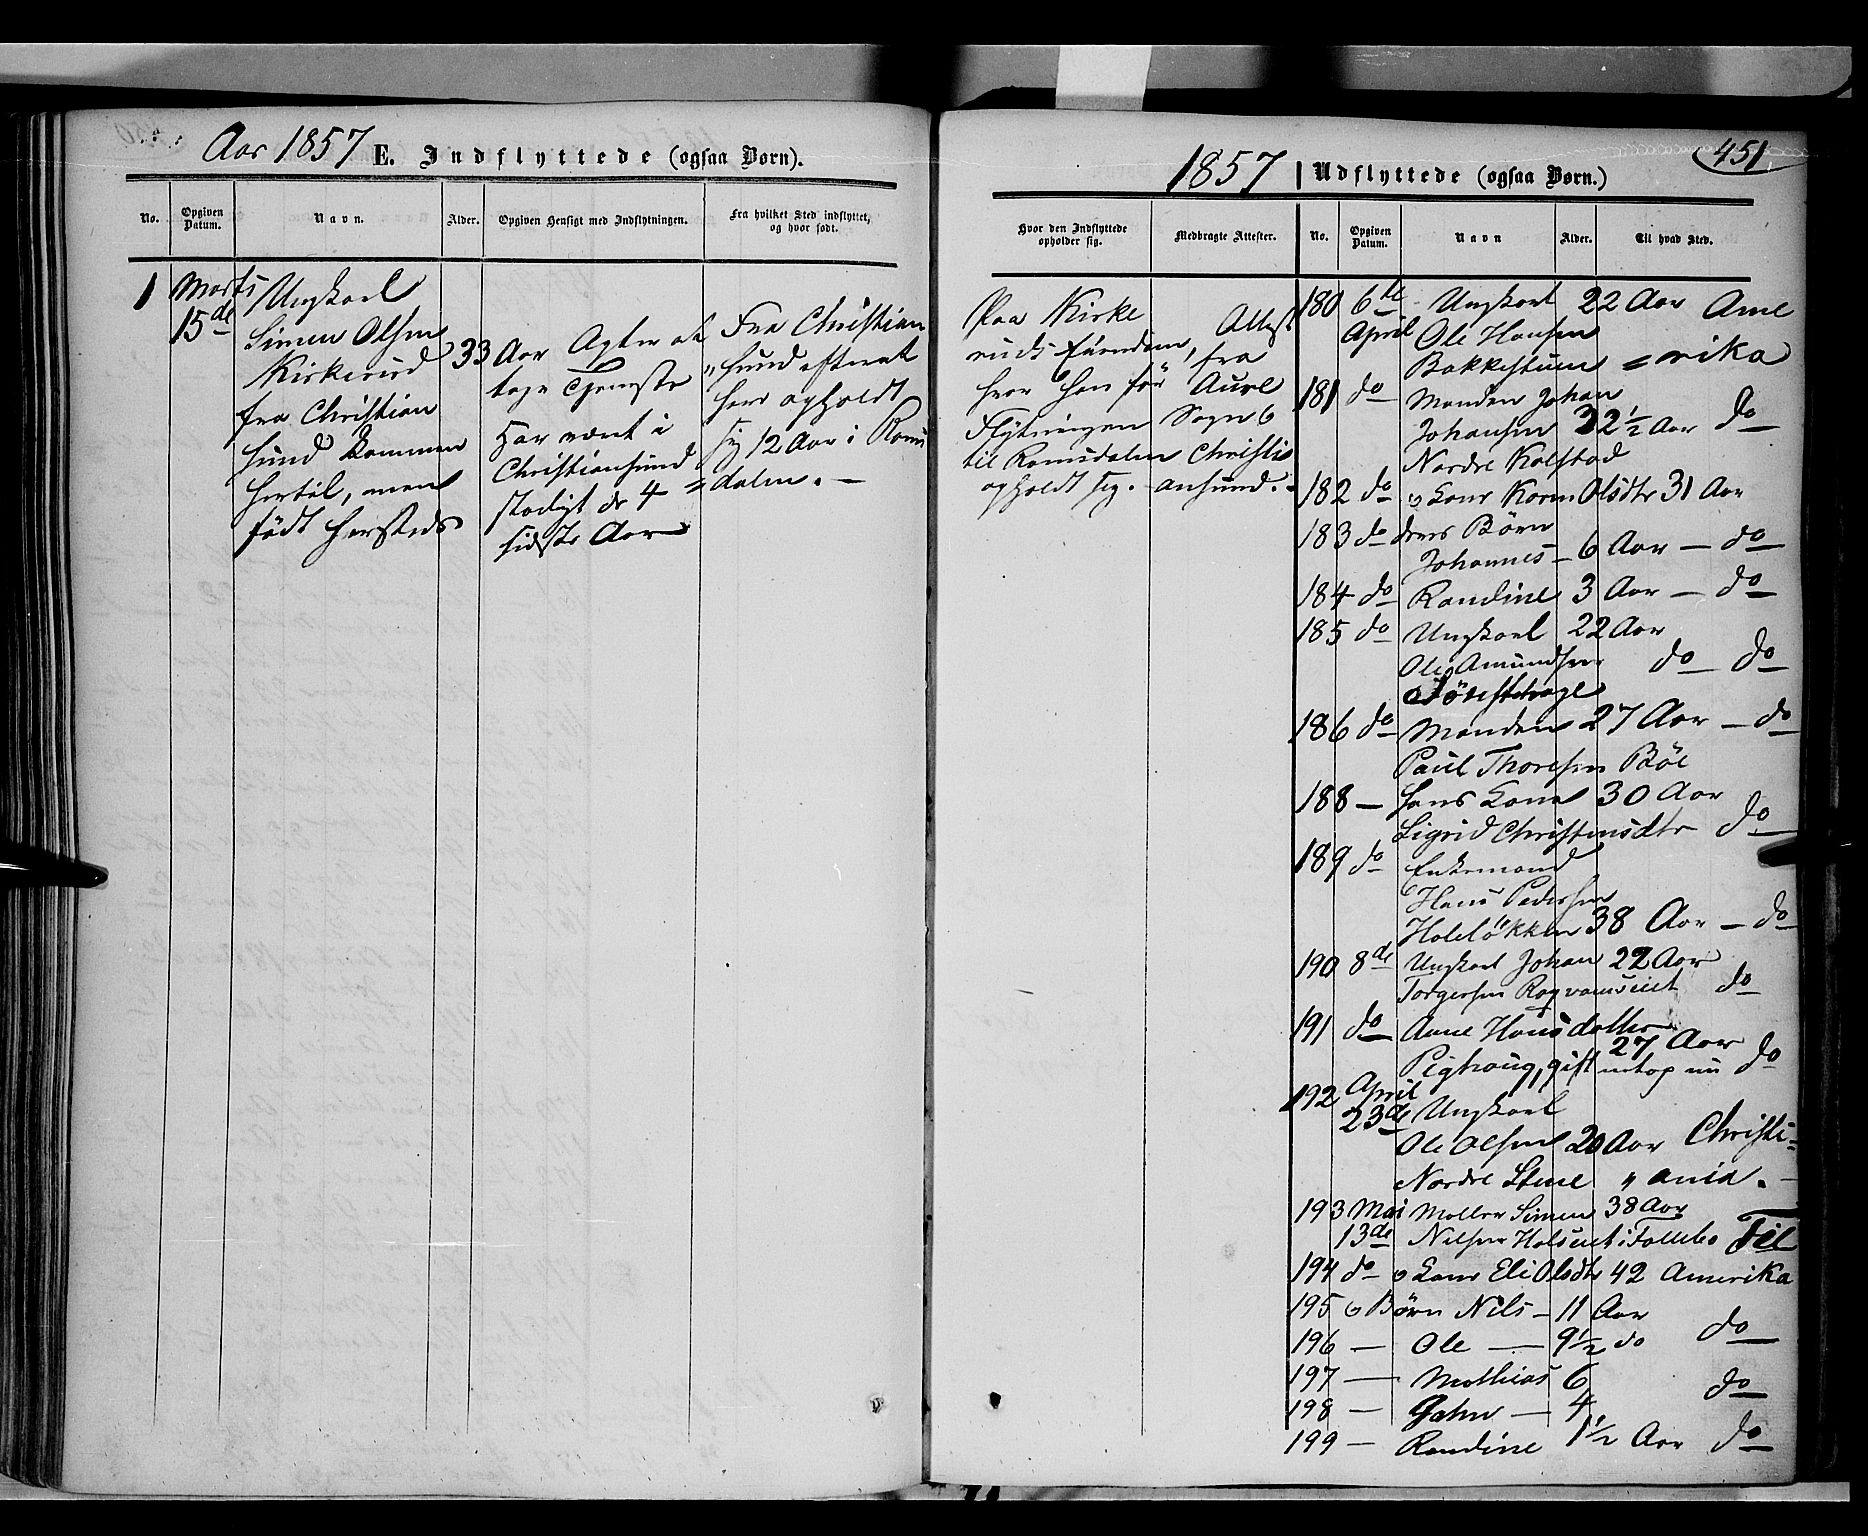 Aar 1857 E. Indflyttede (ogsaa Børn).
No.
Opgiven Datum.
Navn.
Alder.
Opgiven Hensigt med Indflytningen.
Fra hvilket Sted indflyttet, og hvor født.
1 Marts 15de
Ungkarl
Simen Olsen
Kirkerud
fra Christian
sund kommen
hertil, men
født hersteds
33 Aar
Agter at
tage Tjeneste
Har været i
Christiansund
stadigt de 4
sidste Aar
Fra Christian
"sund efterat
have opholdt
sig 12 Aar i Roms
=dalen. —
451
1857 Udflyttede (ogsaa Børn.)
Hvor den Indflyttede opholder sig.
Medbragte Attester.
No.
Opgiven Datum.
Navn
Alder.
Til hvad Sted.
Paa Kirke
ruds Eiendom,
hvor han før
Flytningen
til Romsdalen
opholdt sig.
Attest
fra
Aure
Sogn
Christi
ansund. -
180 6te April Ungkarl 22 Aar Ame
Ole Hansen
Bakkestuen = rika
181 do Manden Johan
Johansen 32½ Aar do
Nordre Kolstad
182 do o Kone Karen Olsdtr 31 Aar
183 do deres Børn
Johannes - 6 Aar — do
184 do Randine 3 Aar — do
185 do Ungkarl 22 Aar
Ole Amundsen do do
186 do Manden 27 Aar — do
Paul Thoresen Bøe
188 — hans Kone 30 Aar
Sigrid Christensdtr do
189 do Enkemand
Hans Pedersen
Holeløkken 38 Aar — do
190 8de Ungkarl Johan 22 Aar
Torgersen do
191 do Anne Hansdatter
27 Aar
Pighaug, gift netop nu do
192 April
23de Ungkarl
Ole Olsen 20 Aar Christi-
Nordre Stene " ania. —
193 Mai Møller Simen 38 Aar
13de Nilsen i Follebo Til
194 do o Kone Eli Olsdtr 42 Amerika
195 o Børn Nils — 11 Aar
196 — Ole — 9½ do do
197 — Mathias 6
198 — — 4 do
199 — Randine 1½ Aar do